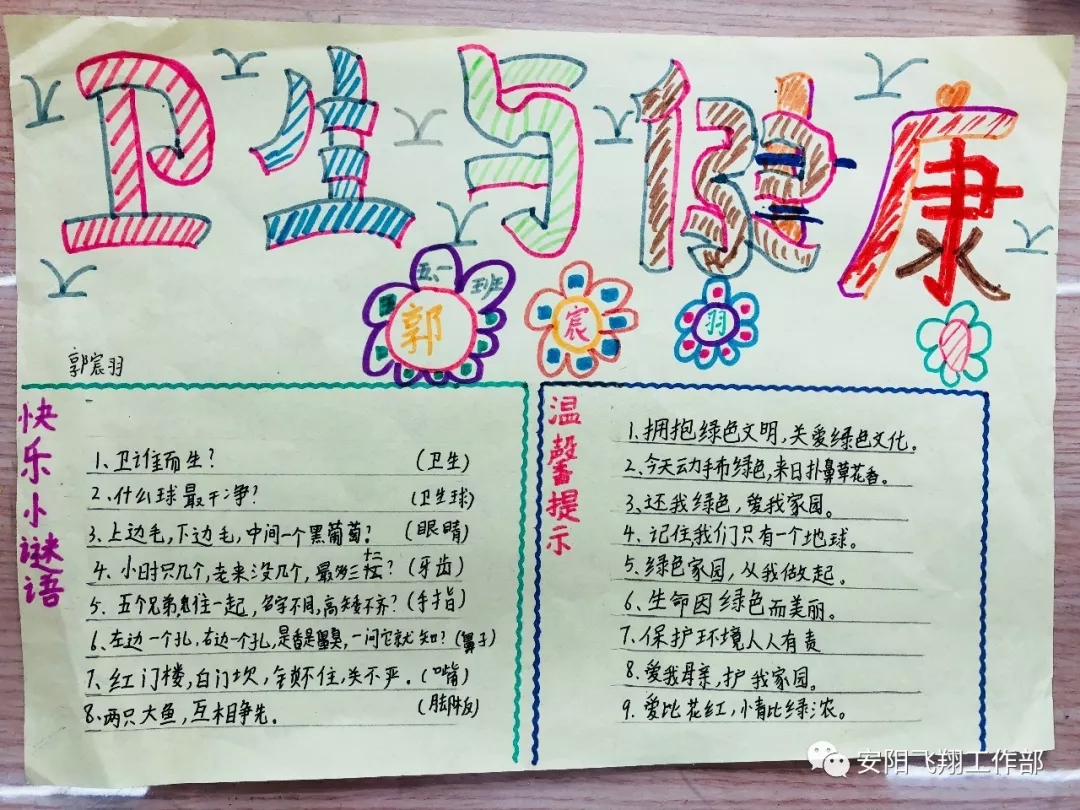 卫生与健康
五、一班
郭
宸
羽
郭宸羽
快乐小谜语
1、卫谁而生？ (卫生)
2、什么球最干净？ (卫生球)
3、上边毛，下边毛，中间一个黑葡萄？ (眼睛)
4、小时只几个，老来没几个，最多三十二？ (牙齿)
5、五个兄弟，住一起，名字不同，高矮不齐？ (手指)
6、左边一个孔，右边一个孔，是香是臭，一问它就知？ (鼻子)
7、红门楼，白门坎，不住，关不严。 (嘴)
8、两只大鱼，互相争先。
温馨提示
1、拥抱绿色文明，关爱绿色文化。
2、今天动手布绿色，来日扑鼻草花香。
3、还我绿色，爱我家园。
4、记住我们只有一个地球。
5、绿色家园，从我做起。
6、生命因绿色而美丽。
7、保护环境人人有责
8、爱我母亲，护我家园。
9、爱比花红，情比绿浓。
安阳飞翔工作部